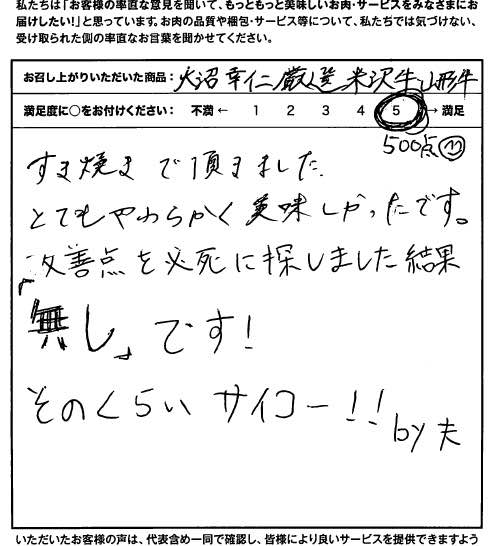 私たちは「お客様の率直な意見を聞いて、もっともっと美味しいお肉・サービスをみなさまにお
届けしたい！」と思っています。お肉の品質や梱包・サービス等について、私たちでは気づけない、
受け取られた側の率直なお言葉を聞かせてください。
お召し上がりいただいた商品： 大沼幸仁厳選 米沢牛山形牛
満足度に○をお付けください： 不満 ← 1 2 3 4 5 → 満足
500点
すき焼きで頂きました
とてもやわらかく美味しかったです。
改善点を必死に探しました結果
「無し」です！
そのくらいサイコー！！
by夫
いただいたお客様の声は、代表含め一同で確認し、皆様により良いサービスを提供できますよう